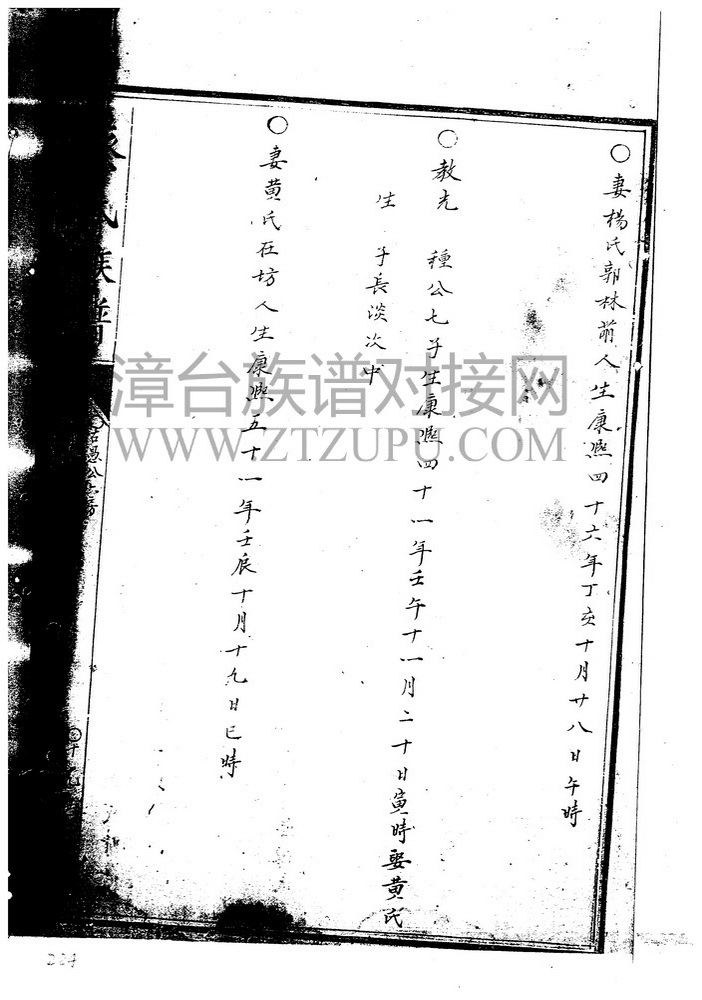 ○妻楊氏郭林萠人生康熙四十六年丁亥十月廿八日午時
○教先 種公七子生康熙四十一年壬午十一月二十日寅時娶黄氏
生 子長淡次中
○妻黄氏在坊人生康熙五十一年壬辰十月十九日巳時
氏族譜
漳台族谱对接网
WWW.ZTZUPU.COM
224